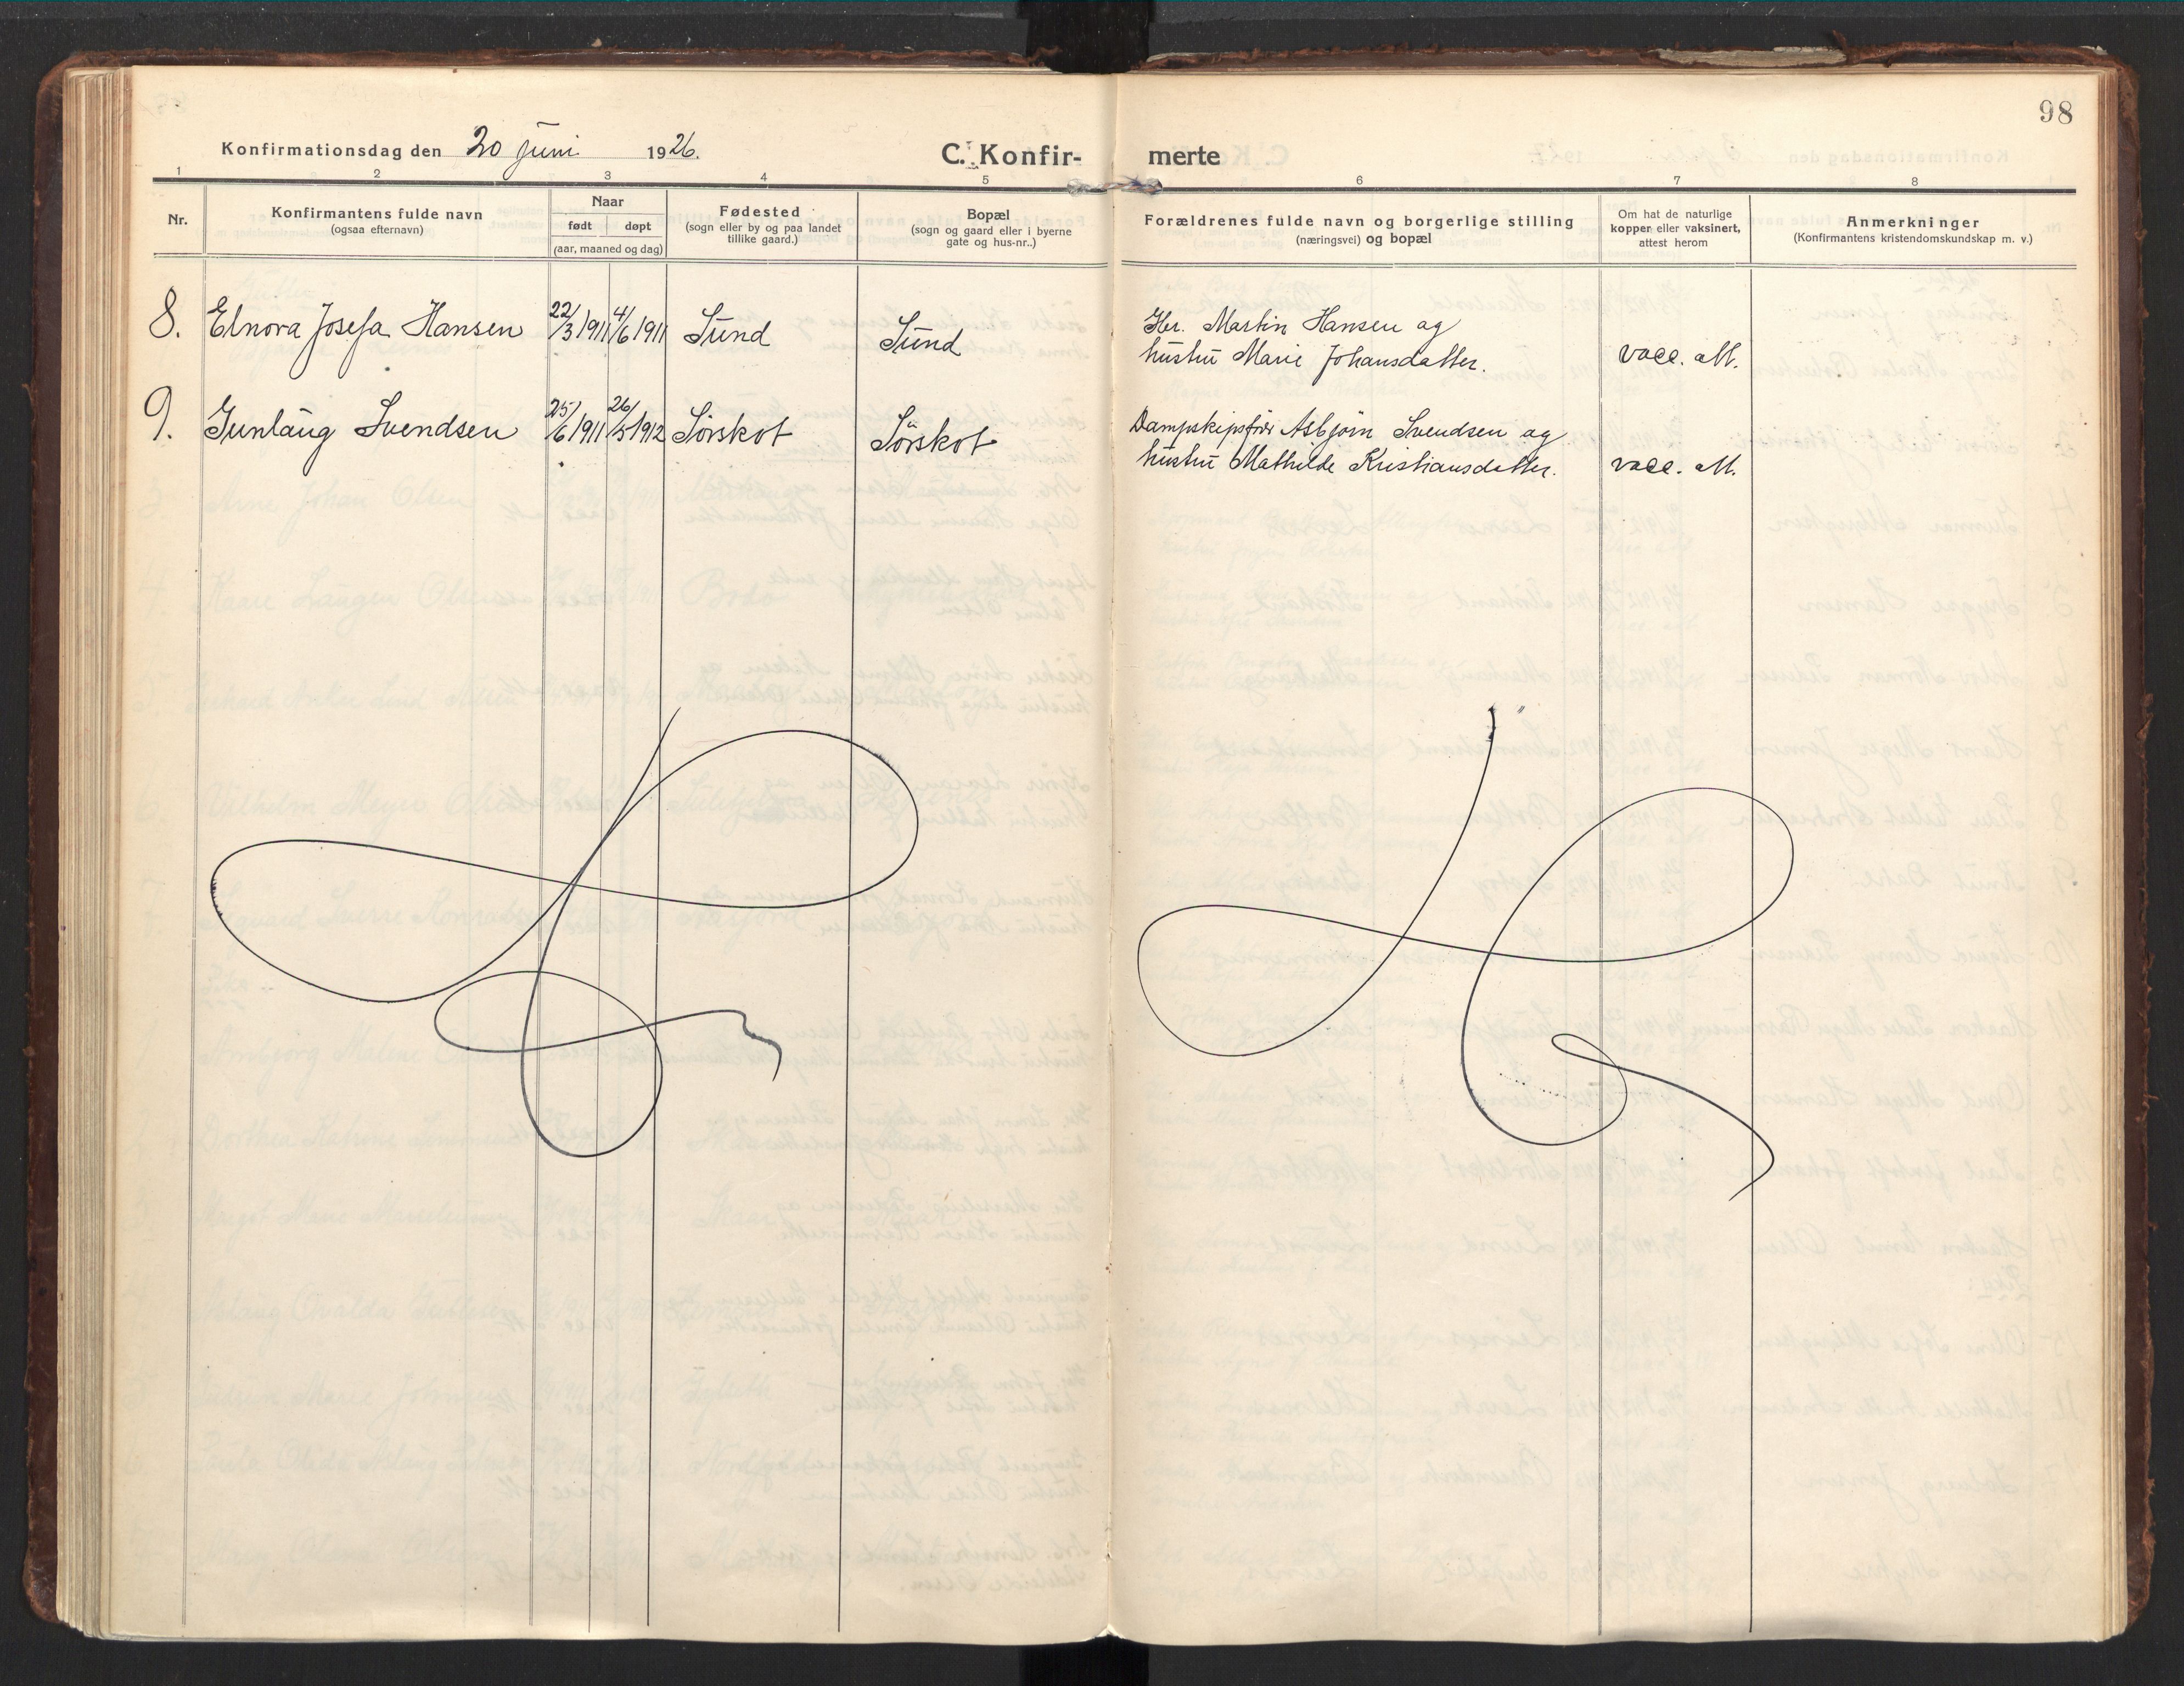 98
Konfirmationsdag den 20 juni 1926.
C. Konfir-
merte
1 2 3 4 5 6 7 8
Nr.
Konfirmantens fulde navn
(ogsaa efternavn)
Naar
født døpt
(aar, maaned og dag)
Fødested
(sogn eller by og paa landet
tillike gaard.)
Bopæl
(sogn og gaard eller i byerne
gate og hus-nr..)
Forældrenes fulde navn og borgerlige stilling
(næringsvei) og bopæl
Om hat de naturlige
kopper eller vaksinert,
attest herom
Anmerkninger
(Konfirmantens kristendomskundskap m. v.)
8. Elnora Josefa Hansen 22/3 1911 4/6 1911 Sund Sund
Martin Hansen og
hustru Marie Johansdatter.
vacc. att.
9. Gunlaug Svendsen 25/6 1911 26/5 1912 Sörskot Sörskot
Dampskipsför Asbjörn Svendsen og
hustru Mathilde Kristiansdatter.
vacc. att.